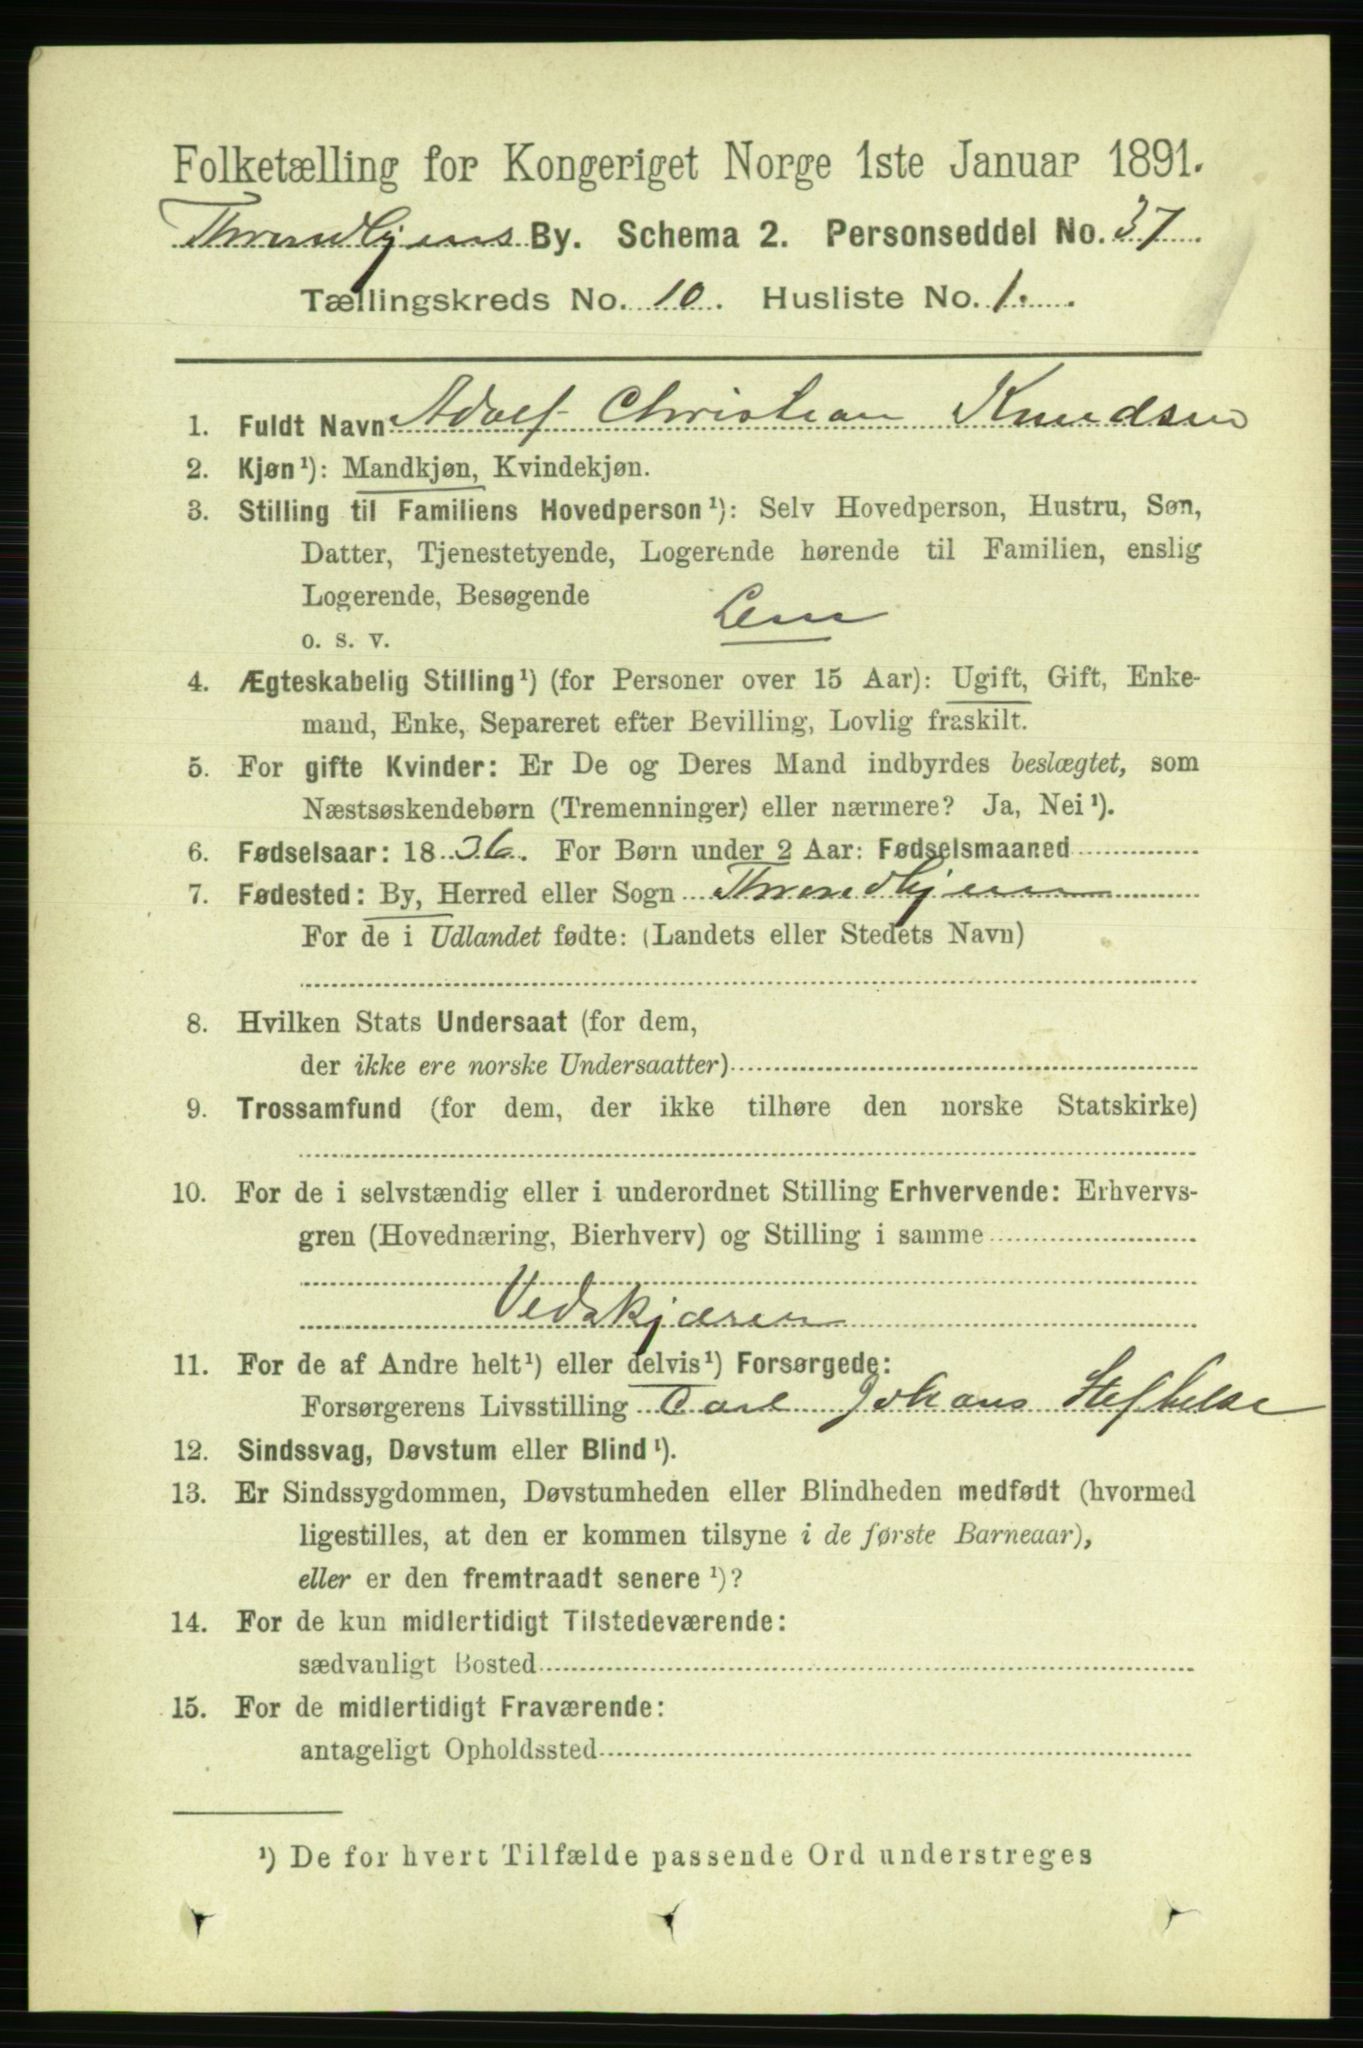 Folketælling for Kongeriget Norge 1ste Januar 1891.
Throndhjems By. Schema 2. Personseddel No. 37
Tællingskreds No. 10. Husliste No. 1.
1. Fuldt Navn Adolf Christian Knudsen
2. Kjøn¹): Mandkjøn, Kvindekjøn.
3. Stilling til Familiens Hovedperson¹): Selv Hovedperson, Hustru, Søn,
Datter, Tjenestetyende, Logerende hørende til Familien, enslig
Logerende, Besøgende
o. s. v. Lem
4. Ægteskabelig Stilling¹) (for Personer over 15 Aar): Ugift, Gift, Enke-
mand, Enke, Separeret efter Bevilling, Lovlig fraskilt.
5. For gifte Kvinder: Er De og Deres Mand indbyrdes beslægtet, som
Næstsøskendebørn (Tremenninger) eller nærmere? Ja, Nei¹).
6. Fødselsaar: 1836. For Børn under 2 Aar: Fødselsmaaned
7. Fødested: By, Herred eller Sogn Throndhjem
For de i Udlandet fødte: (Landets eller Stedets Navn)
8. Hvilken Stats Undersaat (for dem,
der ikke ere norske Undersaatter)
9. Trossamfund (for dem, der ikke tilhøre den norske Statskirke)
10. For de i selvstændig eller i underordnet Stilling Erhvervende: Erhvervs-
gren (Hovednæring, Bierhverv) og Stilling i samme
Vedskjæren
11. For de af Andre helt¹) eller delvis¹) Forsørgede:
Forsørgerens Livsstilling Carl Johans Stiftelse
12. Sindssvag, Døvstum eller Blind¹).
13. Er Sindssygdommen, Døvstumheden eller Blindheden medfødt (hvormed
ligestilles, at den er kommen tilsyne i de første Barneaar),
eller er den fremtraadt senere¹)?
14. For de kun midlertidigt Tilstedeværende:
sædvanligt Bosted
15. For de midlertidigt Fraværende:
antageligt Opholdssted
¹) De for hvert Tilfælde passende Ord understreges